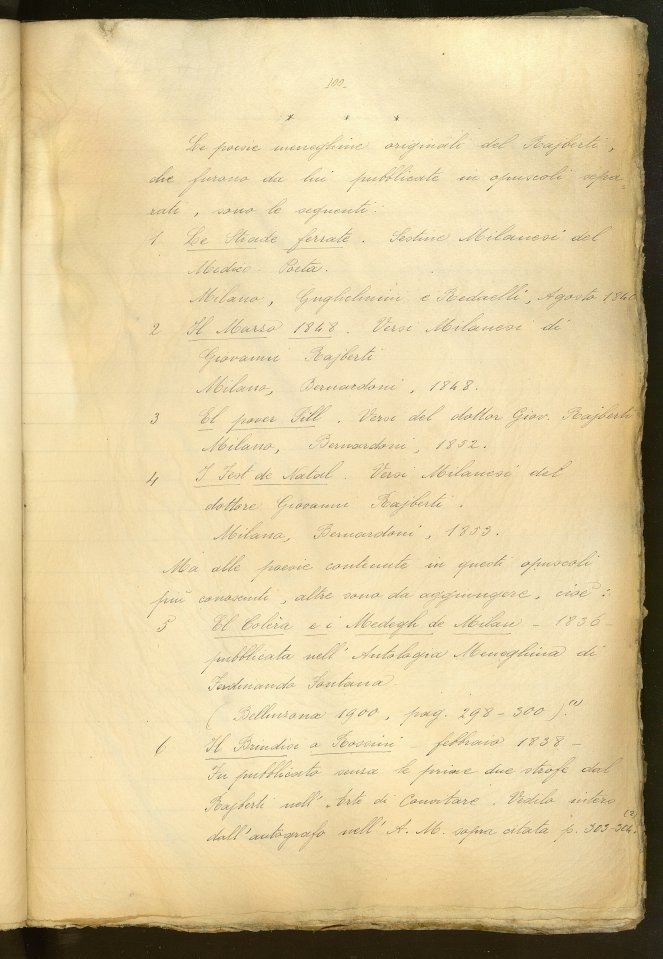 100.
* * *
Le poesie meneghine originali del Rajberti,
che furono da lui pubblicate in opuscoli sepa-
rati, sono le seguenti:
1 Le Strade ferrate. Sestine Milanesi del
Medico-Poeta.
Milano, Guglielmini e Redaelli, Agosto 1840
2 Il Marso 1848. Versi Milanesi di
Giovanni Rajberti
Milano, Bernardoni, 1848.
3 El pover Pill. Versi del dottor Giov. Rajberti
Milano, Bernardoni, 1852.
4 I Fest de Natal. Versi Milanesi del
dottore Giovanni Rajberti.
Milano, Bernardoni, 1853.
Ma alle poesie contenute in questi opuscoli
più conosciuti, altre sono da aggiungere, cioè:
5 El Colèra e i Medegh de Milan - 1836 -
pubblicata nell'Antologia Meneghina di
Ferdinando Fontana
(Bellinzona 1900, pag. 298-300).(1)
6 Il Brindisi a Rossini - febbraio 1838 -
Fu pubblicato senza le prime due strofe dal
Rajberti nell'Arte di Convitare. Vedilo intero
dall'autografo nell'A. M. sopra citata p. 303-304.(2)